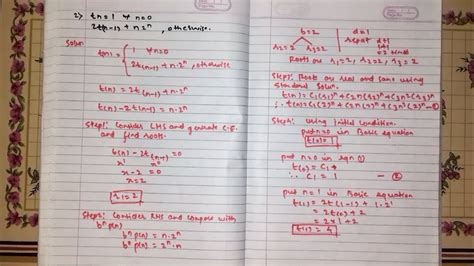 2) tn = 1 ∀ n=0
2t(n-1) + n·2ⁿ, otherwise.
Soln
t(n) = { 1 ∀ n=0
2t(n-1) + n·2ⁿ, otherwise
t(n) = 2t(n-1) + n·2ⁿ
t(n) - 2t(n-1) = n·2ⁿ
Step1: Consider LHS and generate C.E.
and find roots.
t(n) - 2t(n-1) = 0
x¹ x⁰
x - 2 = 0
x = 2
r1 = 2
Step2: Consider RHS and compare with
bⁿ p(n)
bⁿ p(n) = n·2ⁿ
bⁿ p(n) = 2ⁿ·n
b = 2 d = 1
r2 = 2 r3 = 2 repeat d+1
Roots are r1 = 2, r2 = 2, r3 = 2
Step3: Roots are real and same using
standard soln.
t(n) = C1(r1)ⁿ + C2n(r2)ⁿ + C3n²(r3)ⁿ
∴ t(n) = C1(2)ⁿ + C2n(2)ⁿ + C3n²(2)ⁿ
Step4: Using Initial Condition.
put n=0 in Basic equation
t(0) = 1
put n=0 in eqn ①
t(0) = C1
∴ C1 = 1 — ②
put n=1 in Basic equation
t(1) = 2t(1-1) + 1·2¹
= 2t(0) + 2
= 2×1 + 2
t(1) = 4